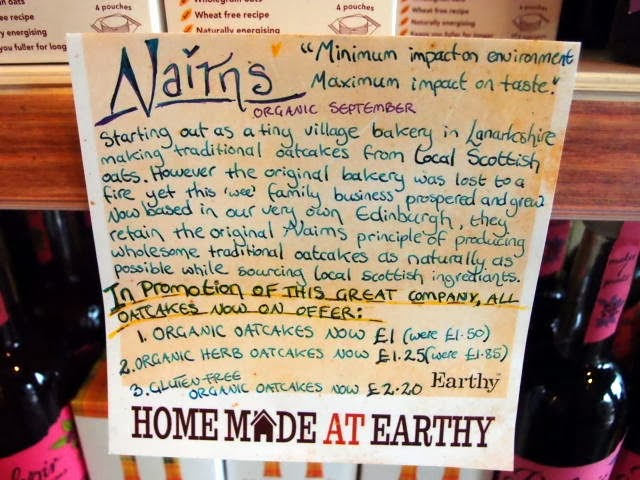 Wholegrain oats
Wheat free recipe
Naturally energising
you fuller for long
4 pouches
4 pouches
Wheat free recipe
Naturally energising
Nairns
"Minimum impact on environment
Maximum impact on taste."
ORGANIC SEPTEMBER
Starting out as a tiny village bakery in Lanarkshire
making traditional oatcakes from local Scottish
oats. However the original bakery was lost to a
fire yet this 'wee' family business prospered and grew.
Now based in our very own Edinburgh, they
retain the original Nairns principle of producing
wholesome traditional oatcakes as naturally as
possible while sourcing local scottish ingrediants.
In Promotion OF THIS GREAT COMPANY, ALL
OATCAKES NOW ON OFFER:
1. ORGANIC OATCAKES NOW £1 (were £1.50)
2. ORGANIC HERB OATCAKES NOW £1.25 (were £1.85)
3. GLUTEN-FREE
ORGANIC OATCAKES NOW £2.20
Earthy
HOME MADE AT EARTHY